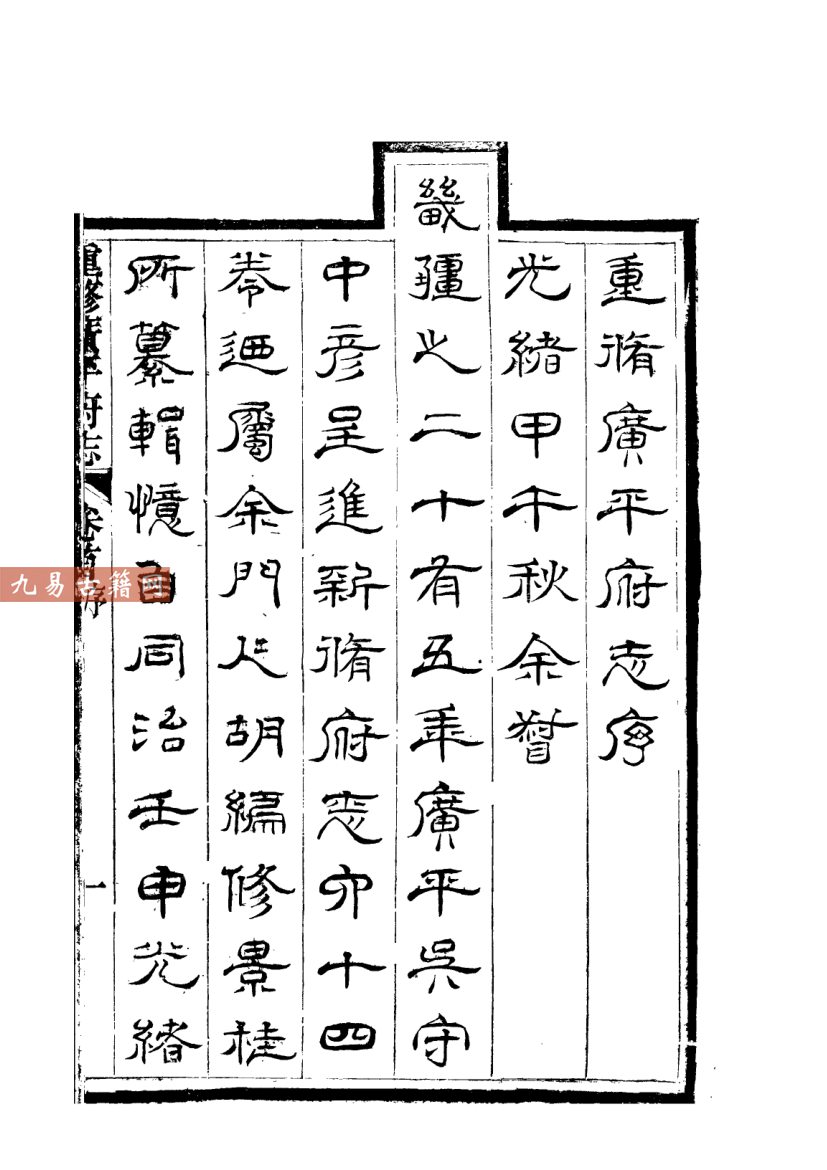 重脩廣平府志序
光緒甲午秋余督
畿疆之二十有五年廣平吳守
中彦呈進新脩府志六十四
卷迺屬余門人胡編修景桂
所纂輯憶自同治壬申光緒
重修廣平府志 卷首序 一
九易古籍网